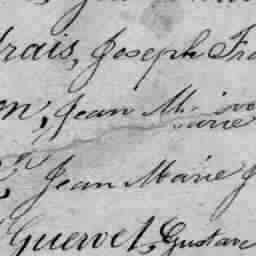 rais, Joseph Fra
on, Jean Marie
Jean Marie J
Guervet, Gustave